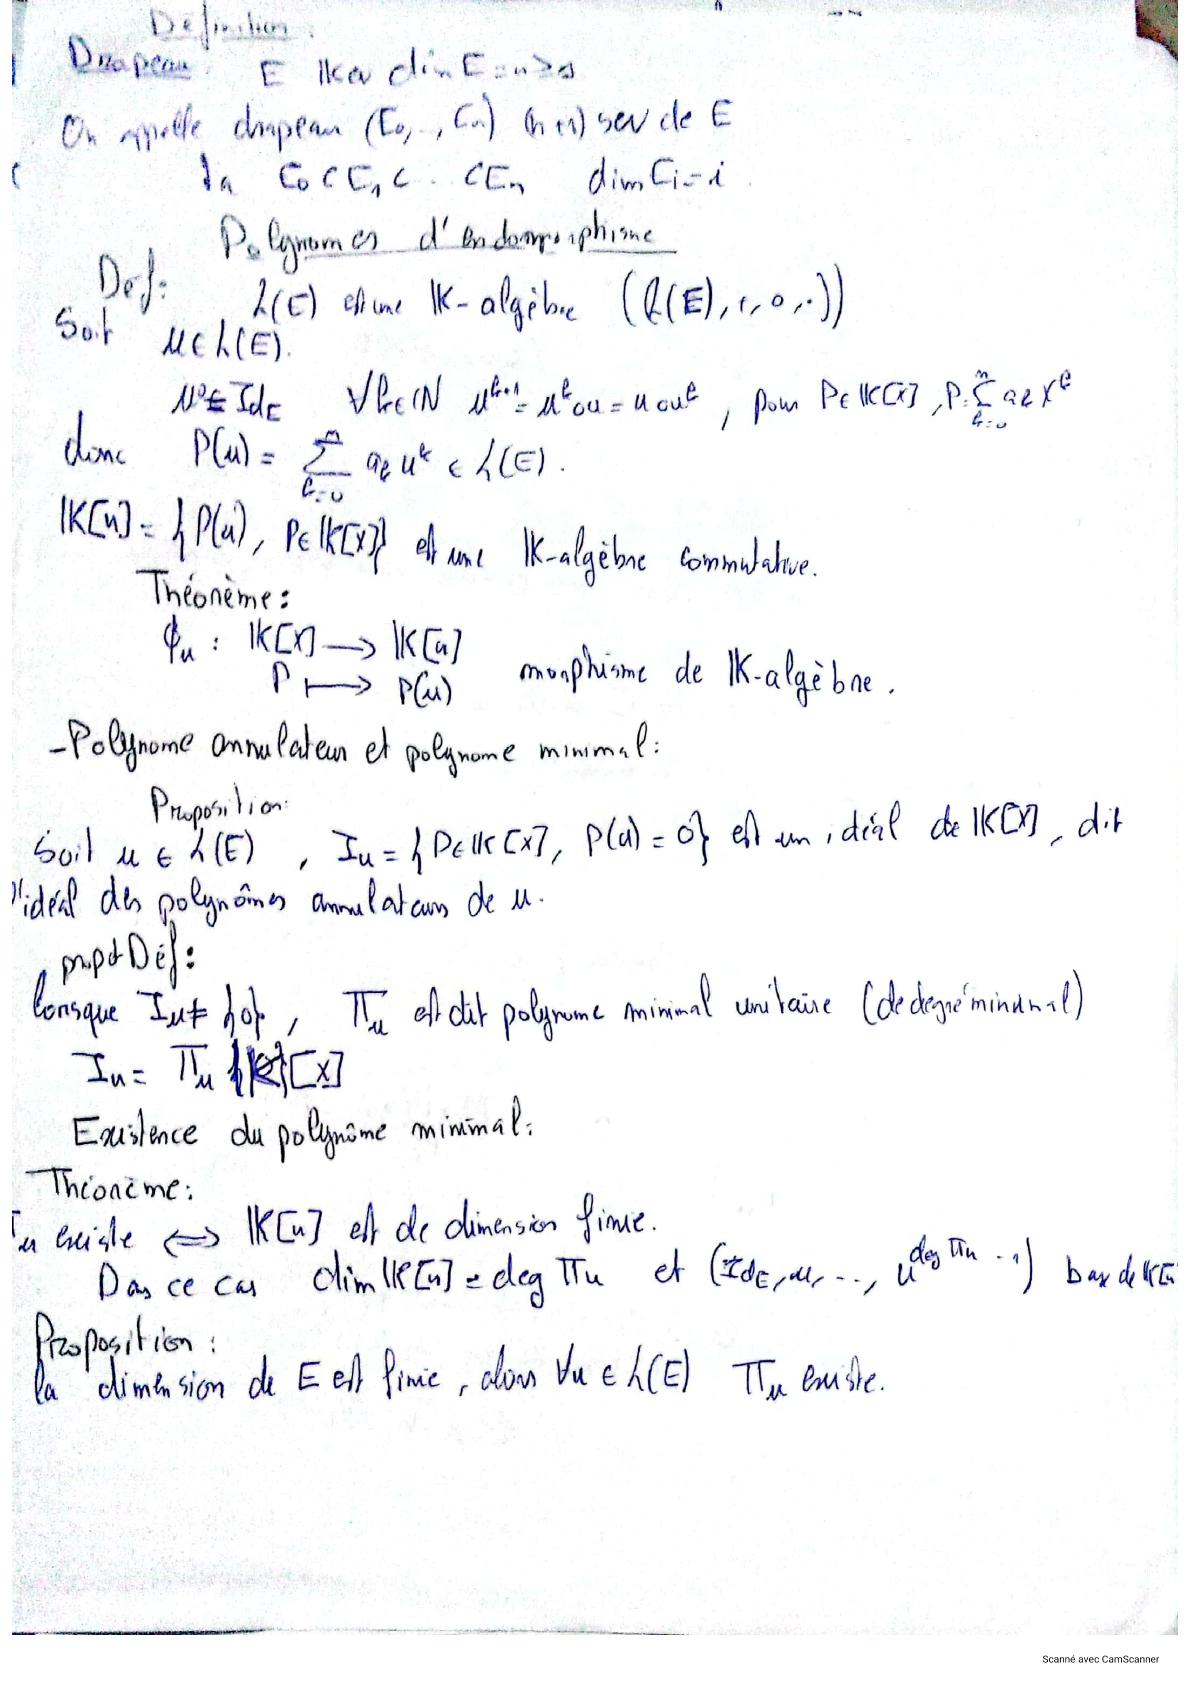 Définition:
Drapeau: E IKev dim E = n ≥ 1
On appelle drapeau (E₀, .., Eₙ) (n+1) sev de E
E₀ ⊂ E₁ ⊂ .. ⊂ Eₙ dim Ei = i.
Polynomes d'endomorphisme
Def: L(E) est une IK-algèbre (L(E), +, o, .))
Soit u ∈ L(E).
u⁰ = Id_E ∀k ∈ IN u^{k+1} = u^k o u = u o u^k, pour P ∈ IK[X], P = Σ_{k=0}^{n} a_k X^k
donc P(u) = Σ_{k=0}^{n} a_k u^k ∈ L(E).
IK[u] = {P(u), P ∈ IK[X]} est une IK-algèbre commutative.
Théorème:
ϕ_u : IK[X] ⟶ IK[u]
P ⟼ P(u) morphisme de IK-algèbre.
-Polynome annulateur et polynome minimal:
Proposition:
Soit u ∈ L(E), I_u = {P ∈ IK[X], P(u) = 0} est un idéal de IK[X], dit
l'idéal des polynômes annulateurs de u.
prop et Déf:
lorsque I_u ≠ {0}, Π_u est dit polynome minimal unitaire (de degré minimal)
I_u = Π_u IK[X]
Existence du polynôme minimal:
Théorème:
Π_u existe ⟺ IK[u] est de dimension finie.
Dans ce cas dim IK[u] = deg Π_u et (Id_E, u, .., u^{deg Π_u - 1}) base de IK[u
Proposition:
la dimension de E est finie, alors ∀u ∈ L(E) Π_u existe.
Scanné avec CamScanner